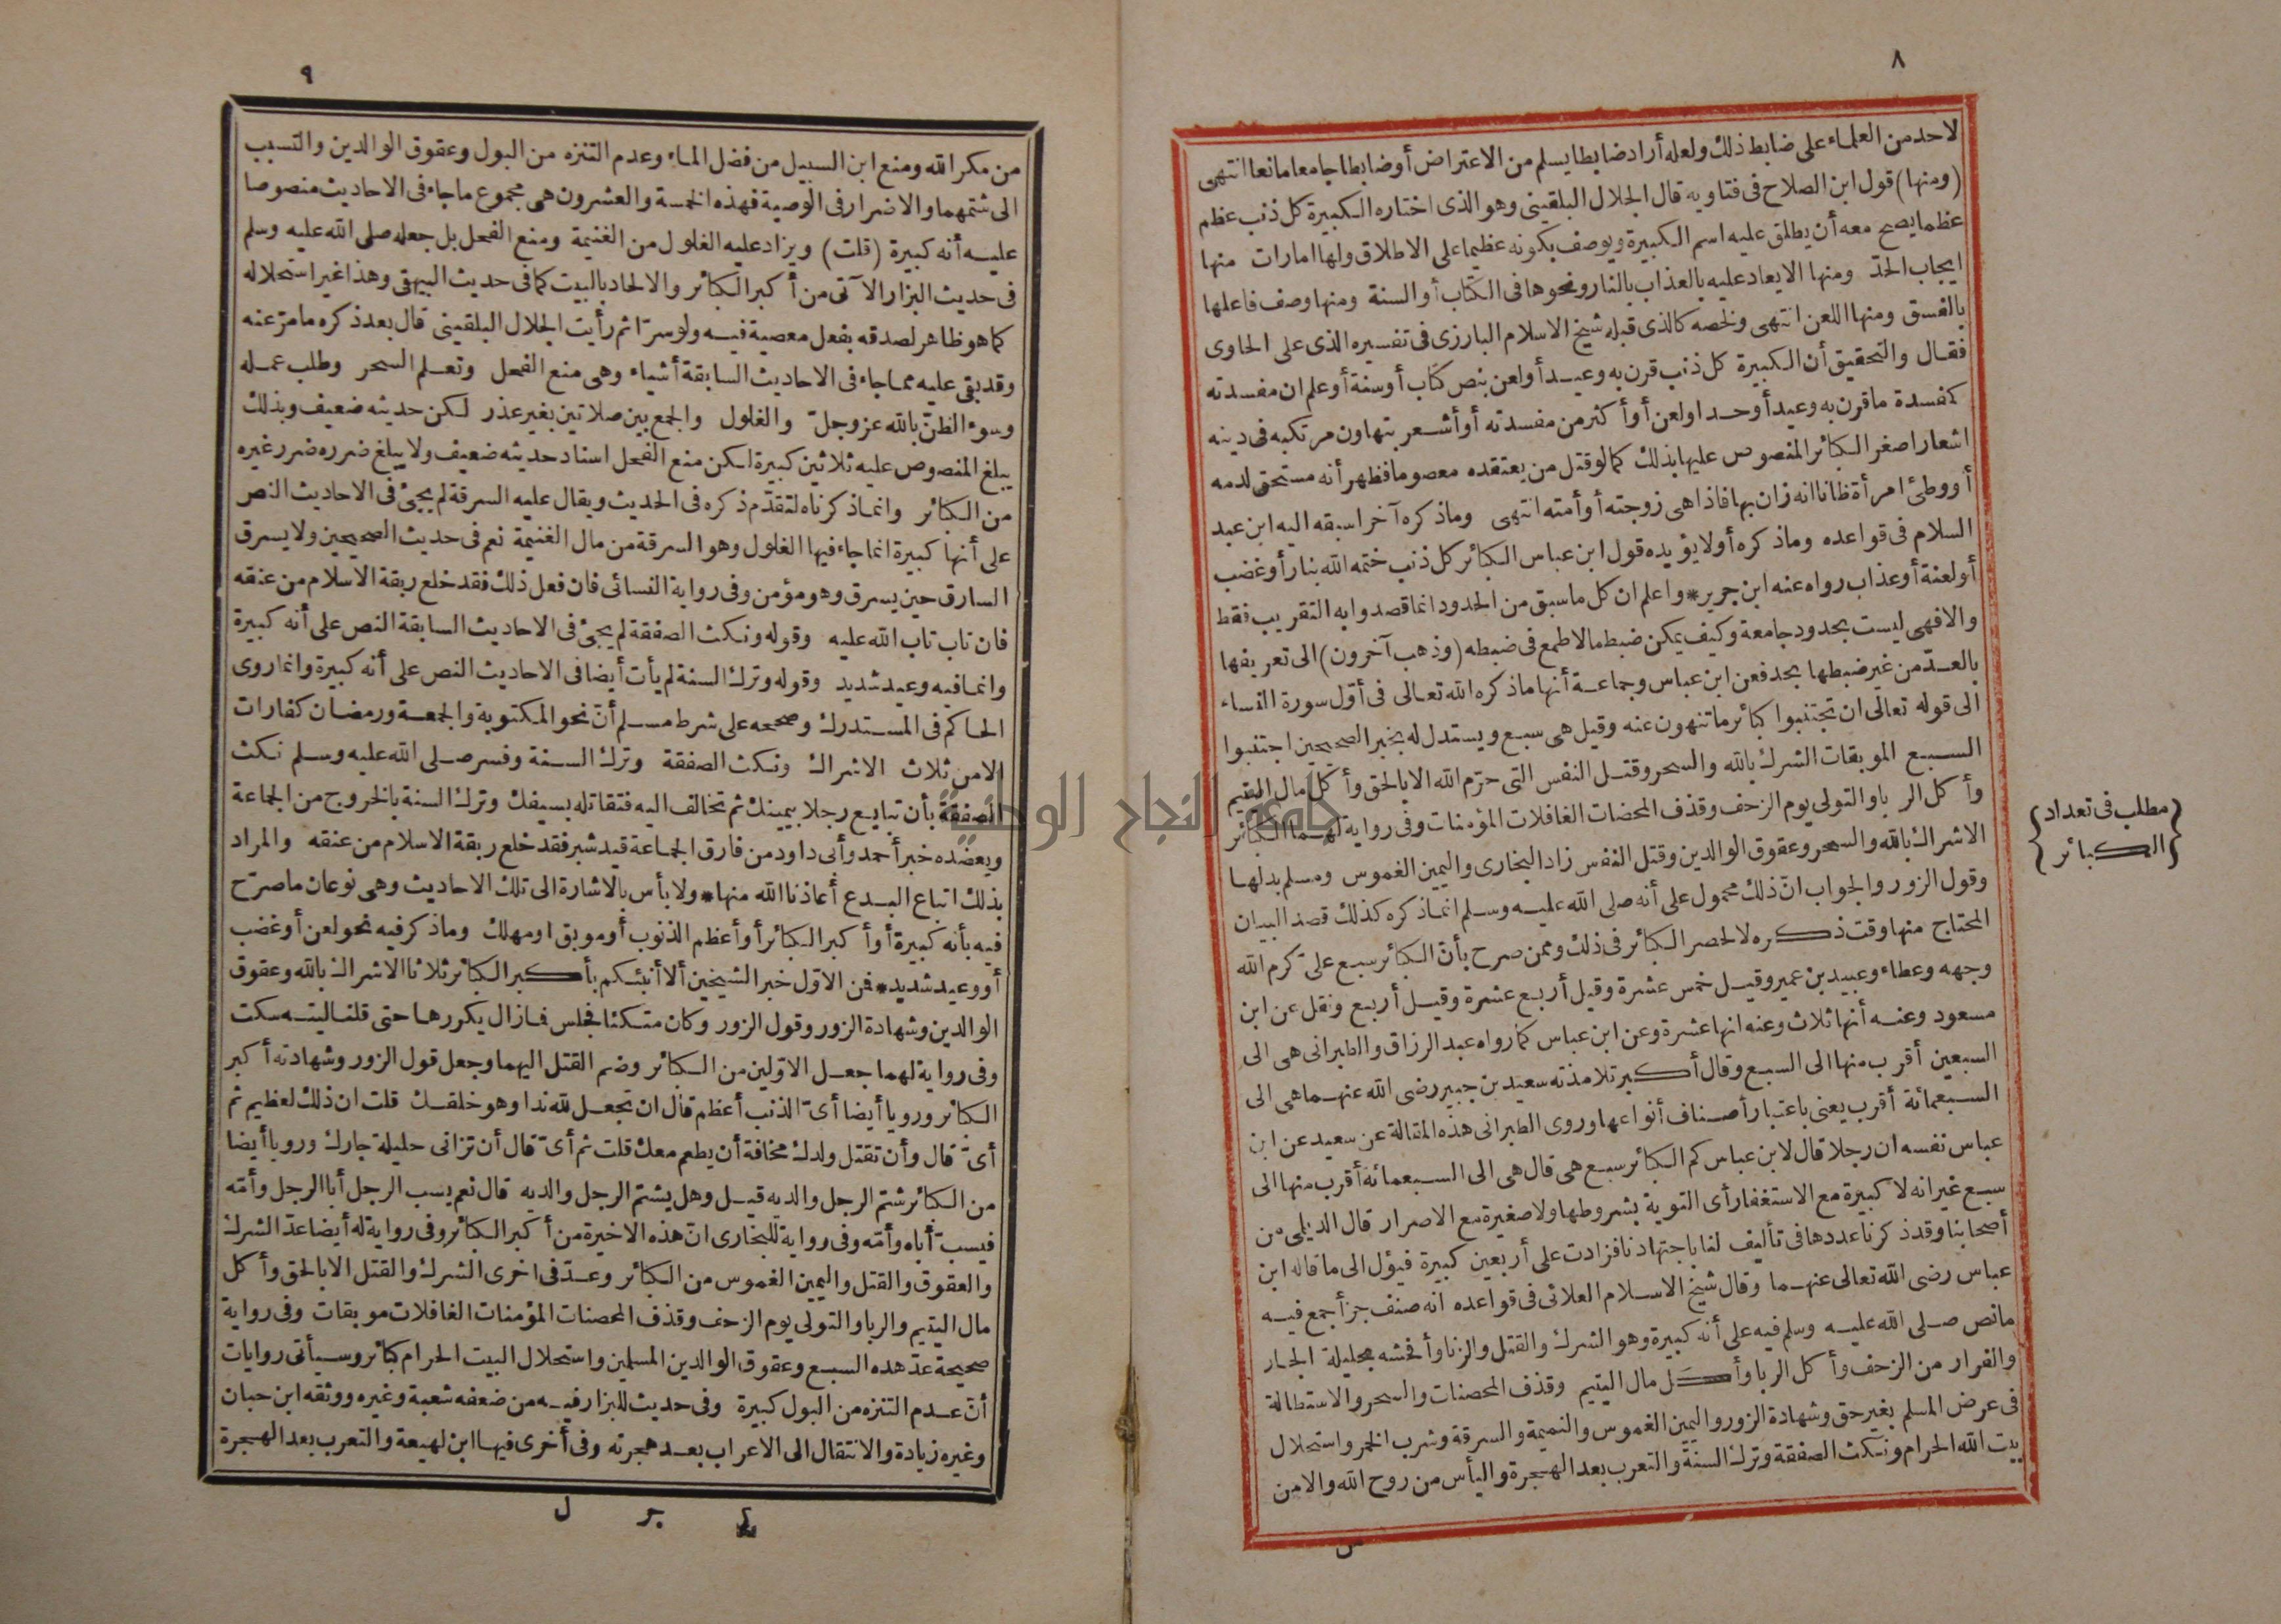 ٨
لاحد من العلماء على ضابط ذلك ولعله أراد ضابطا يسلم من الاعتراض أو ضابطا جامعا مانعا انتهى
(ومنها) قول ابن الصلاح فى فتاويه قال الجلال البلقينى وهو الذى اختاره الكبيرة كل ذنب عظم
عظما يصح معه أن يطلق عليه اسم الكبيرة ويوصف بكونه عظيما على الاطلاق ولها امارات منها
ايجاب الحدّ ومنها الايعاد عليه بالعذاب بالنار ونحوها فى الكتاب أو السنة ومنها وصف فاعلها
بالفسق ومنها اللعن انتهى ولخصه كالذى قبله شيخ الاسلام البارزى فى تفسيره الذى على الحاوى
فقال والتحقيق أن الكبيرة كل ذنب قرن به وعيد أو لعن بنص كتاب أو سنة أو علم ان مفسدته
كمفسدة ما قرن به وعيد أو حد او لعن أو أكثر من مفسدته أو أشعر بتهاون مرتكبه فى دينه
اشعار اصغر الكبائر المنصوص عليها بذلك كما لو قتل من يعتقده معصوما فظهر أنه مستحق لدمه
أو وطئ امرأة ظانا انه زان بها فاذا هى زوجته أو أمته انتهى وما ذكره آخرا سبقه اليه ابن عبد
السلام فى قواعده وما ذكره أولا يؤيده قول ابن عباس الكبائر كل ذنب ختمه الله بنار أو غضب
أو لعنة أو عذاب رواه عنه ابن جرير * واعلم ان كل ما سبق من الحدود انما قصدوا به التقريب فقط
والا فهى ليست بحدود جامعة وكيف يمكن ضبط ما لا طمع فى ضبطه (وذهب آخرون) الى تعريفها
بالعدّ من غير ضبطها بحد فعن ابن عباس وجماعة أنها ما ذكره الله تعالى فى أوّل سورة النساء
الى قوله تعالى ان تجتنبوا كبائر ما تنهون عنه وقيل هى سبع ويستدل له بخبر الصحيحين اجتنبوا
السبع الموبقات الشرك بالله والسحر وقتل النفس التى حرّم الله الا بالحق وأكل مال اليتيم
وأكل الربا والتولى يوم الزحف وقذف المحصنات الغافلات المؤمنات وفى رواية لهما الكبائر
الاشراك بالله والسحر وعقوق الوالدين وقتل النفس زاد البخارى واليمين الغموس ومسلم بدلها
وقول الزور والجواب انّ ذلك محمول على أنه صلى الله عليه وسلم انما ذكره كذلك قصد البيان
المحتاج منها وقت ذكره لا لحصر الكبائر فى ذلك وممن صرح بأن الكبائر سبع علىّ كرم الله
وجهه وعطاء وعبيد بن عمير وقيل خمس عشرة وقيل أربع عشرة وقيل أربع ونقل عن ابن
مسعود وعنه أنها ثلاث وعنه انها عشرة وعن ابن عباس كما رواه عبد الرزاق والطبرانى هى الى
السبعين أقرب منها الى السبع وقال أكبر تلامذته سعيد بن جبير رضى الله عنهما هى الى
السبعمائة أقرب يعنى باعتبار أصناف أنواعها وروى الطبرانى هذه المقالة عن سعيد عن ابن
عباس نفسه ان رجلا قال لابن عباس كم الكبائر سبع هى قال هى الى السبعمائة أقرب منها الى
سبع غير انه لا كبيرة مع الاستغفار أى التوبة بشروطها ولا صغيرة مع الاصرار قال الديلمى من
أصحابنا وقد ذكرنا عددها فى تأليف لنا باجتهادنا فزادت على أربعين كبيرة فيؤل الى ما قاله ابن
عباس رضى الله تعالى عنهما وقال شيخ الاسلام العلائى فى قواعده انه صنف جزأ جمع فيه
ما نص صلى الله عليه وسلم فيه على أنه كبيرة وهو الشرك والقتل والزنا وأفحشه بحليلة الجار
والفرار من الزحف وأكل الربا وأكل مال اليتيم وقذف المحصنات والسحر والاستطالة
فى عرض المسلم بغير حق وشهادة الزور واليمين الغموس والنميمة والسرقة وشرب الخمر واستحلال
بيت الله الحرام ونكث الصفقة وترك السنة والتعرب بعد الهجرة واليأس من روح الله والامن
من
مطلب فى تعداد
الكبائر
٩
من مكر الله ومنع ابن السبيل من فضل الماء وعدم التنزه من البول وعقوق الوالدين والتسبب
الى شتمهما والاضرار فى الوصية فهذه الخمسة والعشرون هى مجموع ما جاء فى الاحاديث منصوصا
عليه أنه كبيرة (قلت) ويزاد عليه الغلول من الغنيمة ومنع الفحل بل جعله صلى الله عليه وسلم
فى حديث البزار الآتى من أكبر الكبائر والالحاد بالبيت كما فى حديث البيهقى وهذا غير استحلاله
كما هو ظاهر لصدقه بفعل معصية فيه ولو سرّا ثم رأيت الجلال البلقينى قال بعد ذكره ما مرّ عنه
وقد بقى عليه مما جاء فى الاحاديث السابقة أشياء وهى منع الفحل وتعلم السحر وطلب عمله
وسوء الظنّ بالله عز وجلّ والغلول والجمع بين صلاتين بغير عذر لكن حديثه ضعيف وبذلك
يبلغ المنصوص عليه ثلاثين كبيرة لكن منع الفحل اسناد حديثه ضعيف ولا يبلغ ضرره ضرر غيره
من الكبائر وانما ذكرناه لتقدّم ذكره فى الحديث ويقال عليه السرقة لم يجئ فى الاحاديث النص
على أنها كبيرة انما جاء فيها الغلول وهو السرقة من مال الغنيمة نعم فى حديث الصحيحين ولا يسرق
السارق حين يسرق وهو مؤمن وفى رواية النسائى فان فعل ذلك فقد خلع ربقة الاسلام من عنقه
فان تاب تاب الله عليه وقوله ونكث الصفقة لم يجئ فى الاحاديث السابقة النص على أنه كبيرة
وانما فيه وعيد شديد وقوله وترك السنة لم يأت أيضا فى الاحاديث النص على أنه كبيرة وانما روى
الحاكم فى المستدرك وصححه على شرط مسلم أنّ نحو المكتوبة والجمعة ورمضان كفارات
الا من ثلاث الاشراك ونكث الصفقة وترك السنة وفسر صلى الله عليه وسلم نكث
الصفقة بأن تبايع رجلا بيمينك ثم تخالف اليه فتقاتله بسيفك وترك السنة بالخروج من الجماعة
ويعضده خبر أحمد وأبى داود من فارق الجماعة قيد شبر فقد خلع ربقة الاسلام من عنقه والمراد
بذلك اتباع البدع أعاذنا الله منها * ولا بأس بالاشارة الى تلك الاحاديث وهى نوعان ما صرّح
فيه بأنه كبيرة أو أكبر الكبائر أو أعظم الذنوب أو موبق او مهلك وما ذكر فيه نحو لعن أو غضب
أو وعيد شديد * فمن الاوّل خبر الشيخين ألا أنبئكم بأكبر الكبائر ثلاثا الاشراك بالله وعقوق
الوالدين وشهادة الزور وقول الزور وكان متكئا فجلس فما زال يكررها حتى قلنا ليته سكت
وفى رواية لهما جعل الاوّلين من الكبائر وضم القتل اليهما وجعل قول الزور وشهادته أكبر
الكبائر ورويا أيضا أىّ الذنب أعظم قال ان تجعل لله ندا وهو خلقك قلت ان ذلك لعظيم ثم
أىّ قال وأن تقتل ولدك مخافة أن يطعم معك قلت ثم أىّ قال أن تزانى حليلة جارك ورويا أيضا
من الكبائر شتم الرجل والديه قيل وهل يشتم الرجل والديه قال نعم يسب الرجل أبا الرجل وأمّه
فيسبّ أباه وأمّه وفى رواية للبخارى انّ هذه الاخيرة من أكبر الكبائر وفى رواية له أيضا عدّ الشرك
والعقوق والقتل واليمين الغموس من الكبائر وعدّ فى اخرى الشرك والقتل الا بالحق وأكل
مال اليتيم والربا والتولى يوم الزحف وقذف المحصنات المؤمنات الغافلات موبقات وفى رواية
صحيحة عدّ هذه السبع وعقوق الوالدين المسلمين واستحلال البيت الحرام كبائر وسيأتى روايات
أنّ عدم التنزه من البول كبيرة وفى حديث للبزار فيه من ضعفه شعبة وغيره ووثقه ابن حبان
وغيره زيادة والانتقال الى الاعراب بعد هجرته وفى أخرى فيها ابن لهيعة والتعرب بعد الهجرة
جر ل
جامعة النجاح الوطنية